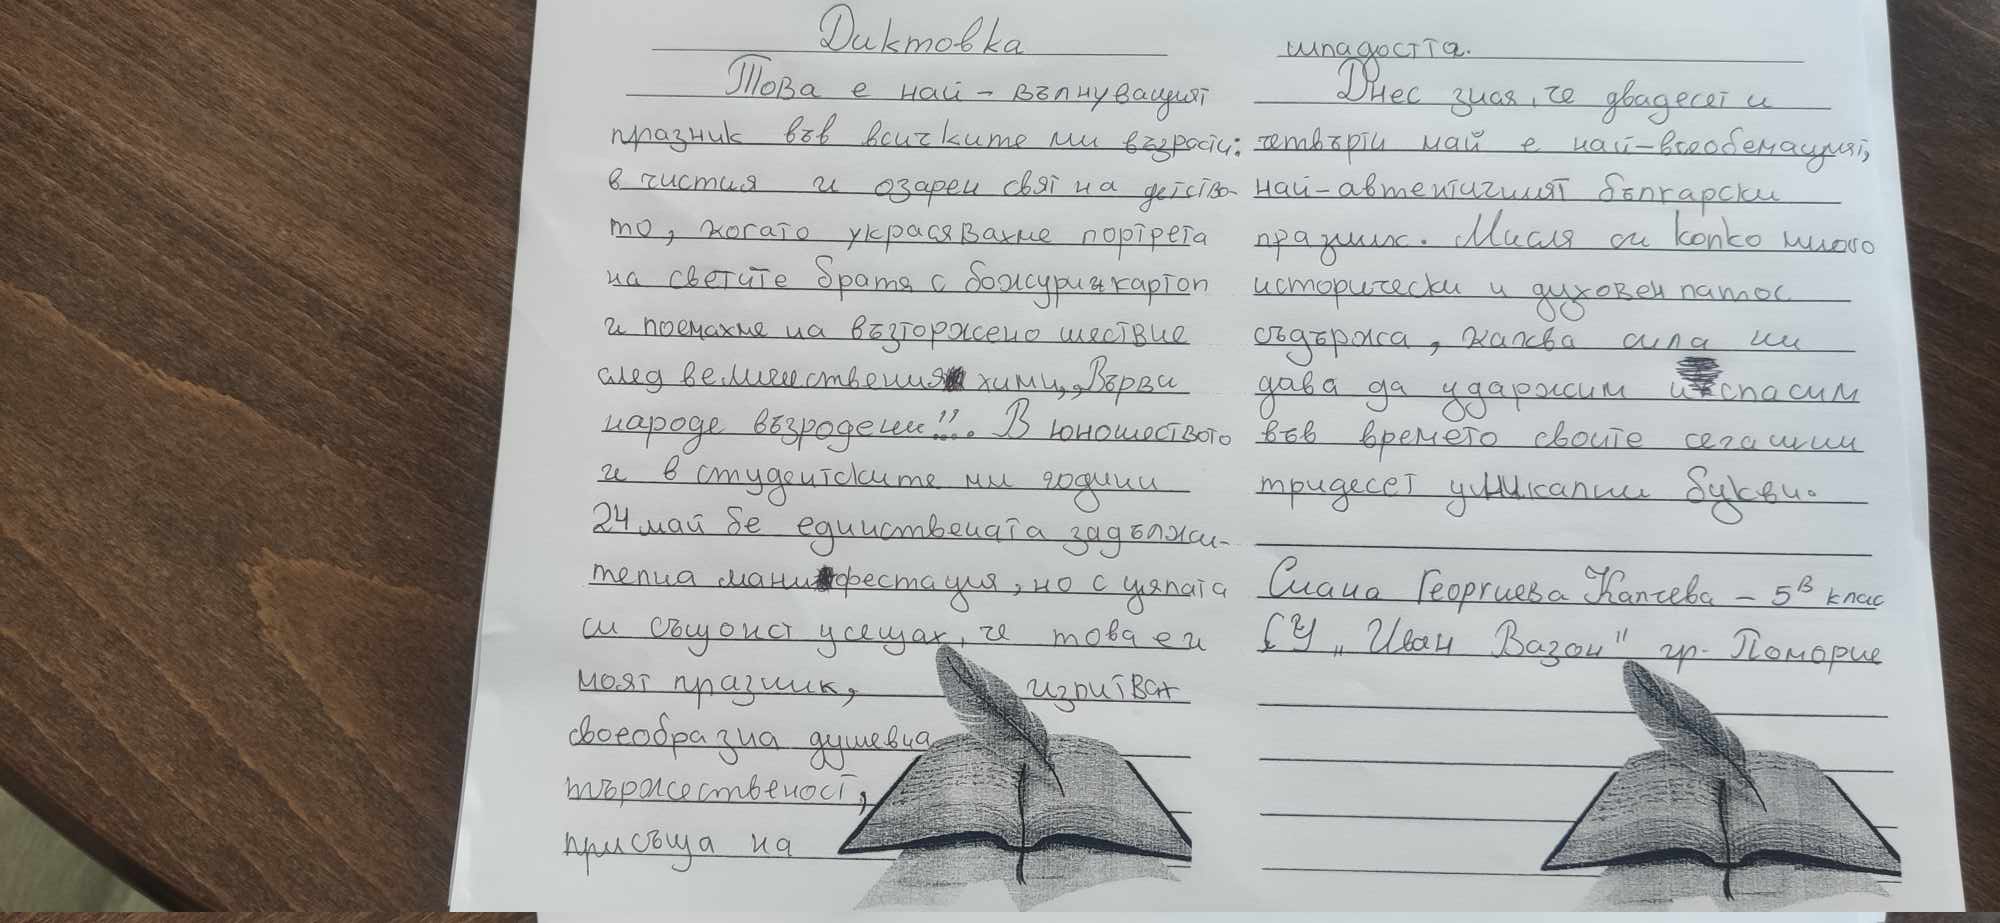 Диктовка
Това е най - вълнуващият
празник във всичките ми възрасти:
в чистия и озарен свят на детство-
то, когато украсявахме портрета
на светите братя с божури и картон
и поемахме на възторжено шествие
след величествения химн „Върви
народе възродени!". В юношеството
и в студентските ми години
24 май бе единствената задължи-
телна манифестация, но с цялата
си същност усещах, че това е и
моят празник, изпитвах
своеобразна душевна
тържественост,
присъща на
младостта.
Днес зная, че двадесет и
четвърти май е най-всеобемащият,
най-автентичният български
празник. Мисля си колко много
исторически и духовен патос
съдържа, каква сила ни
дава да удържим и спасим
във времето своите сегашни
тридесет уникални букви.
Сиана Георгиева Калчева - 5В клас
СУ „Иван Вазов" гр. Поморие